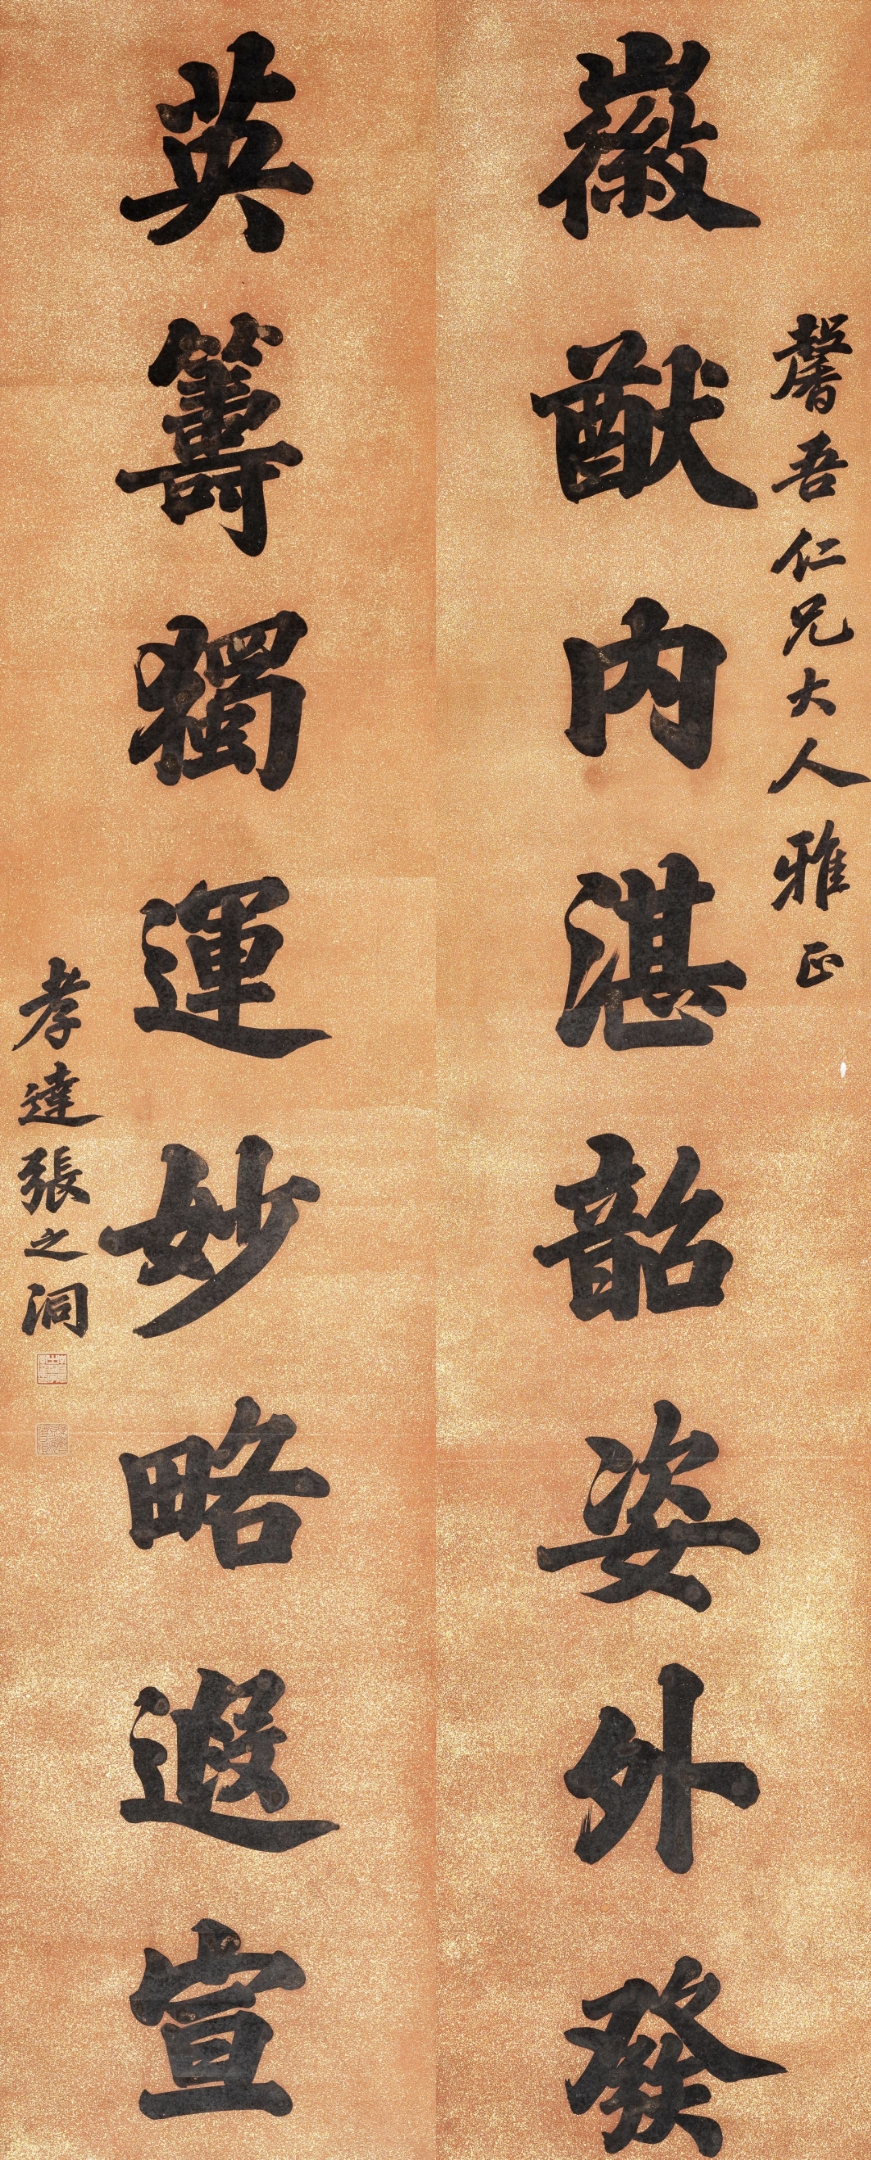 馨吾仁兄大人雅正
徽猷内湛韶姿外發
英籌獨運妙略遐宣
孝達張之洞